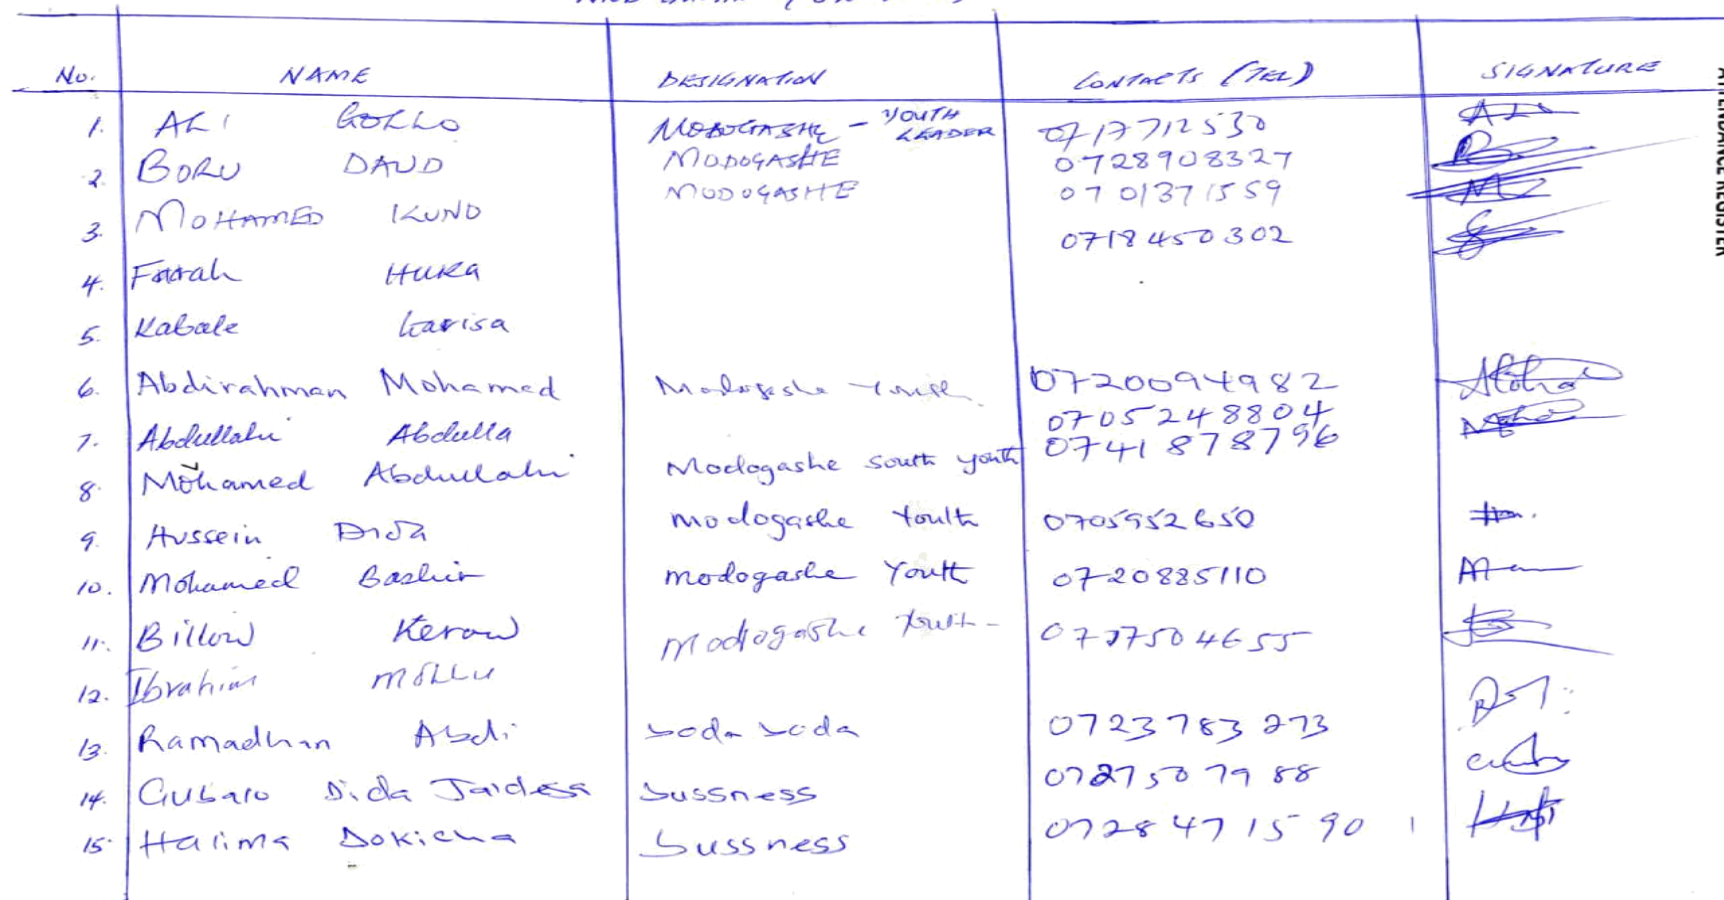 No. NAME DESIGNATION CONTACTS (TEL) SIGNATURE
1. ALI GOLLO MODOGASHE - YOUTH LEADER 0717712530
2. BORU DAUD MODOGASHE 0728908327
3. MOHAMED KUNO MODOGASHE 0701371559
0718450302
4. Farah HUKA
5. Kabale Garisa
6. Abdirahman Mohamed Modogashe Youth 0720094982
7. Abdullahi Abdulla 0705248804
8. Mohamed Abdullahi Modogashe south youth 0741878796
9. Hussein DIDA modogashe Youth 0705952650
10. Mohamed Bashir modogashe Youth 0720885110
11. Billow Kerow Modogashe Youth - 0727504655
12. Ibrahim MOLLU
13. Ramadhan Abdi boda boda 0723783273
14. Gubalo Dida Jaidesa bussness 0727507988
15. Halima Dokicha bussness 0728471590
ATTENDANCE REGISTER